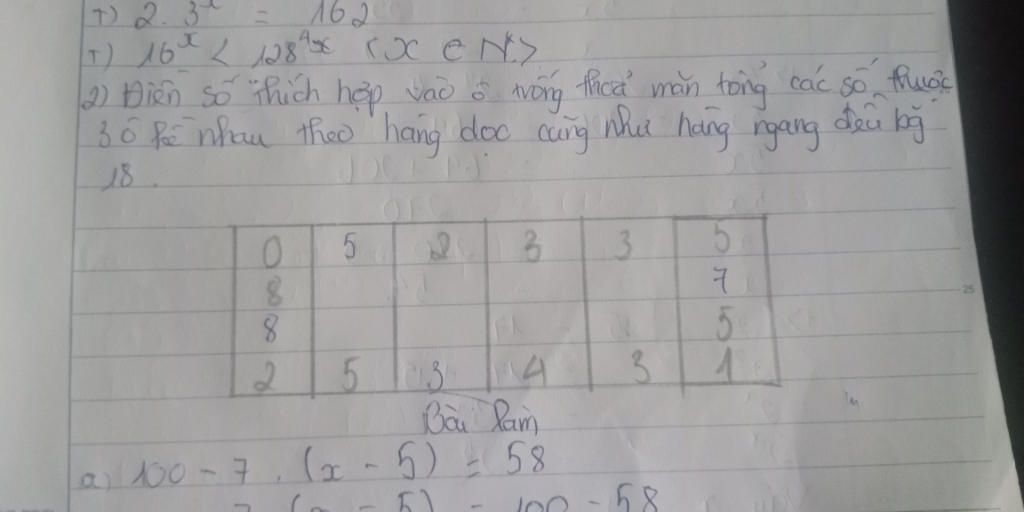 T) 2. 3ˣ = 162
T) 16ˣ < 128⁴ˣ (x ∈ N*)
2) Điền số thích hợp vào ô trống thoả mãn tổng các số thuộc
3 ô kề nhau theo hàng dọc cũng như hàng ngang đều bằng
18.
0 5 2 3 3 5
8 7
8 5
2 5 3 4 3 1
Bài làm
a) 100 - 7 . (x - 5) = 58
(x - 5) = 100 - 58